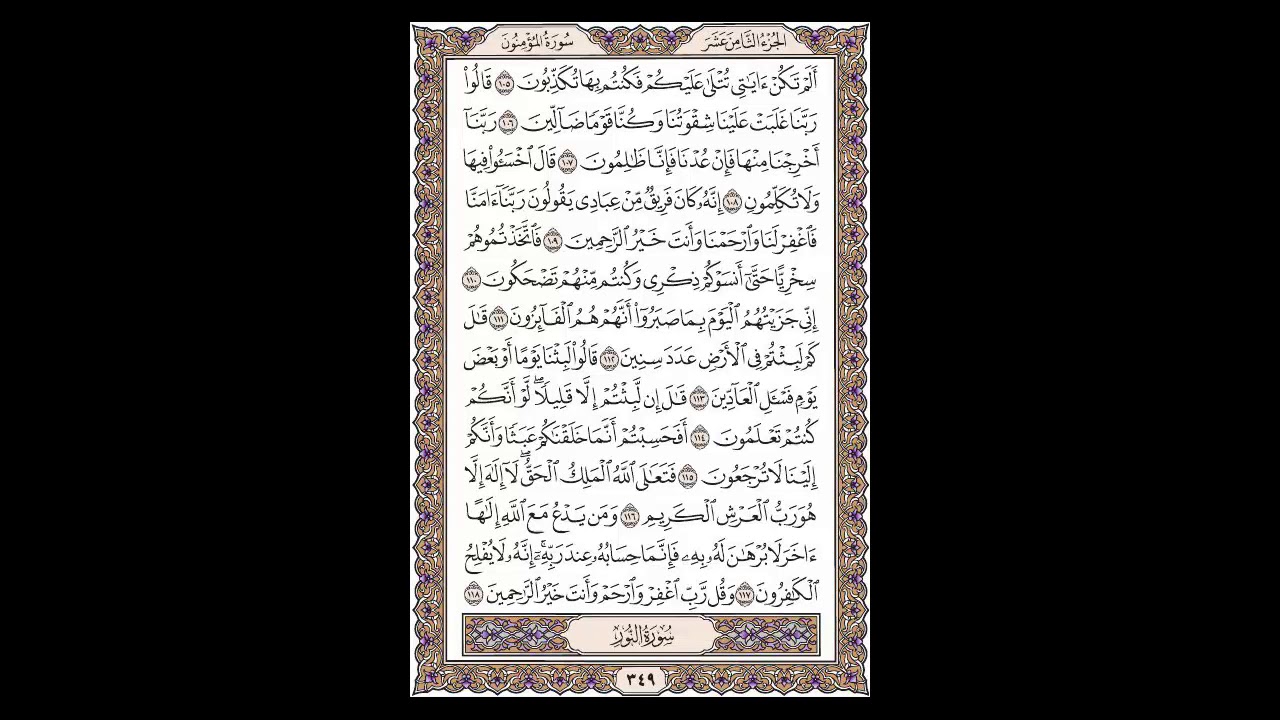 الجزء الثامن عشر
سورة المؤمنون
أَلَمْ تَكُنْ ءَايَٰتِى تُتْلَىٰ عَلَيْكُمْ فَكُنتُم بِهَا تُكَذِّبُونَ ١٠٥ قَالُوا۟
رَبَّنَا غَلَبَتْ عَلَيْنَا شِقْوَتُنَا وَكُنَّا قَوْمًا ضَآلِّينَ ١٠٦ رَبَّنَآ
أَخْرِجْنَا مِنْهَا فَإِنْ عُدْنَا فَإِنَّا ظَٰلِمُونَ ١٠٧ قَالَ ٱخْسَـُٔوا۟ فِيهَا
وَلَا تُكَلِّمُونِ ١٠٨ إِنَّهُۥ كَانَ فَرِيقٌ مِّنْ عِبَادِى يَقُولُونَ رَبَّنَآ ءَامَنَّا
فَٱغْفِرْ لَنَا وَٱرْحَمْنَا وَأَنتَ خَيْرُ ٱلرَّٰحِمِينَ ١٠٩ فَٱتَّخَذْتُمُوهُمْ
سِخْرِيًّا حَتَّىٰٓ أَنسَوْكُمْ ذِكْرِى وَكُنتُم مِّنْهُمْ تَضْحَكُونَ ١١٠
إِنِّى جَزَيْتُهُمُ ٱلْيَوْمَ بِمَا صَبَرُوٓا۟ أَنَّهُمْ هُمُ ٱلْفَآئِزُونَ ١١١ قَٰلَ
كَمْ لَبِثْتُمْ فِى ٱلْأَرْضِ عَدَدَ سِنِينَ ١١٢ قَالُوا۟ لَبِثْنَا يَوْمًا أَوْ بَعْضَ
يَوْمٍ فَسْـَٔلِ ٱلْعَآدِّينَ ١١٣ قَٰلَ إِن لَّبِثْتُمْ إِلَّا قَلِيلًا ۖ لَّوْ أَنَّكُمْ
كُنتُمْ تَعْلَمُونَ ١١٤ أَفَحَسِبْتُمْ أَنَّمَا خَلَقْنَٰكُمْ عَبَثًا وَأَنَّكُمْ
إِلَيْنَا لَا تُرْجَعُونَ ١١٥ فَتَعَٰلَى ٱللَّهُ ٱلْمَلِكُ ٱلْحَقُّ ۖ لَآ إِلَٰهَ إِلَّا
هُوَ رَبُّ ٱلْعَرْشِ ٱلْكَرِيمِ ١١٦ وَمَن يَدْعُ مَعَ ٱللَّهِ إِلَٰهًا
ءَاخَرَ لَا بُرْهَٰنَ لَهُۥ بِهِۦ فَإِنَّمَا حِسَابُهُۥ عِندَ رَبِّهِۦٓ ۚ إِنَّهُۥ لَا يُفْلِحُ
ٱلْكَٰفِرُونَ ١١٧ وَقُل رَّبِّ ٱغْفِرْ وَٱرْحَمْ وَأَنتَ خَيْرُ ٱلرَّٰحِمِينَ ١١٨
سُورَةُ النُّورِ
٣٤٩